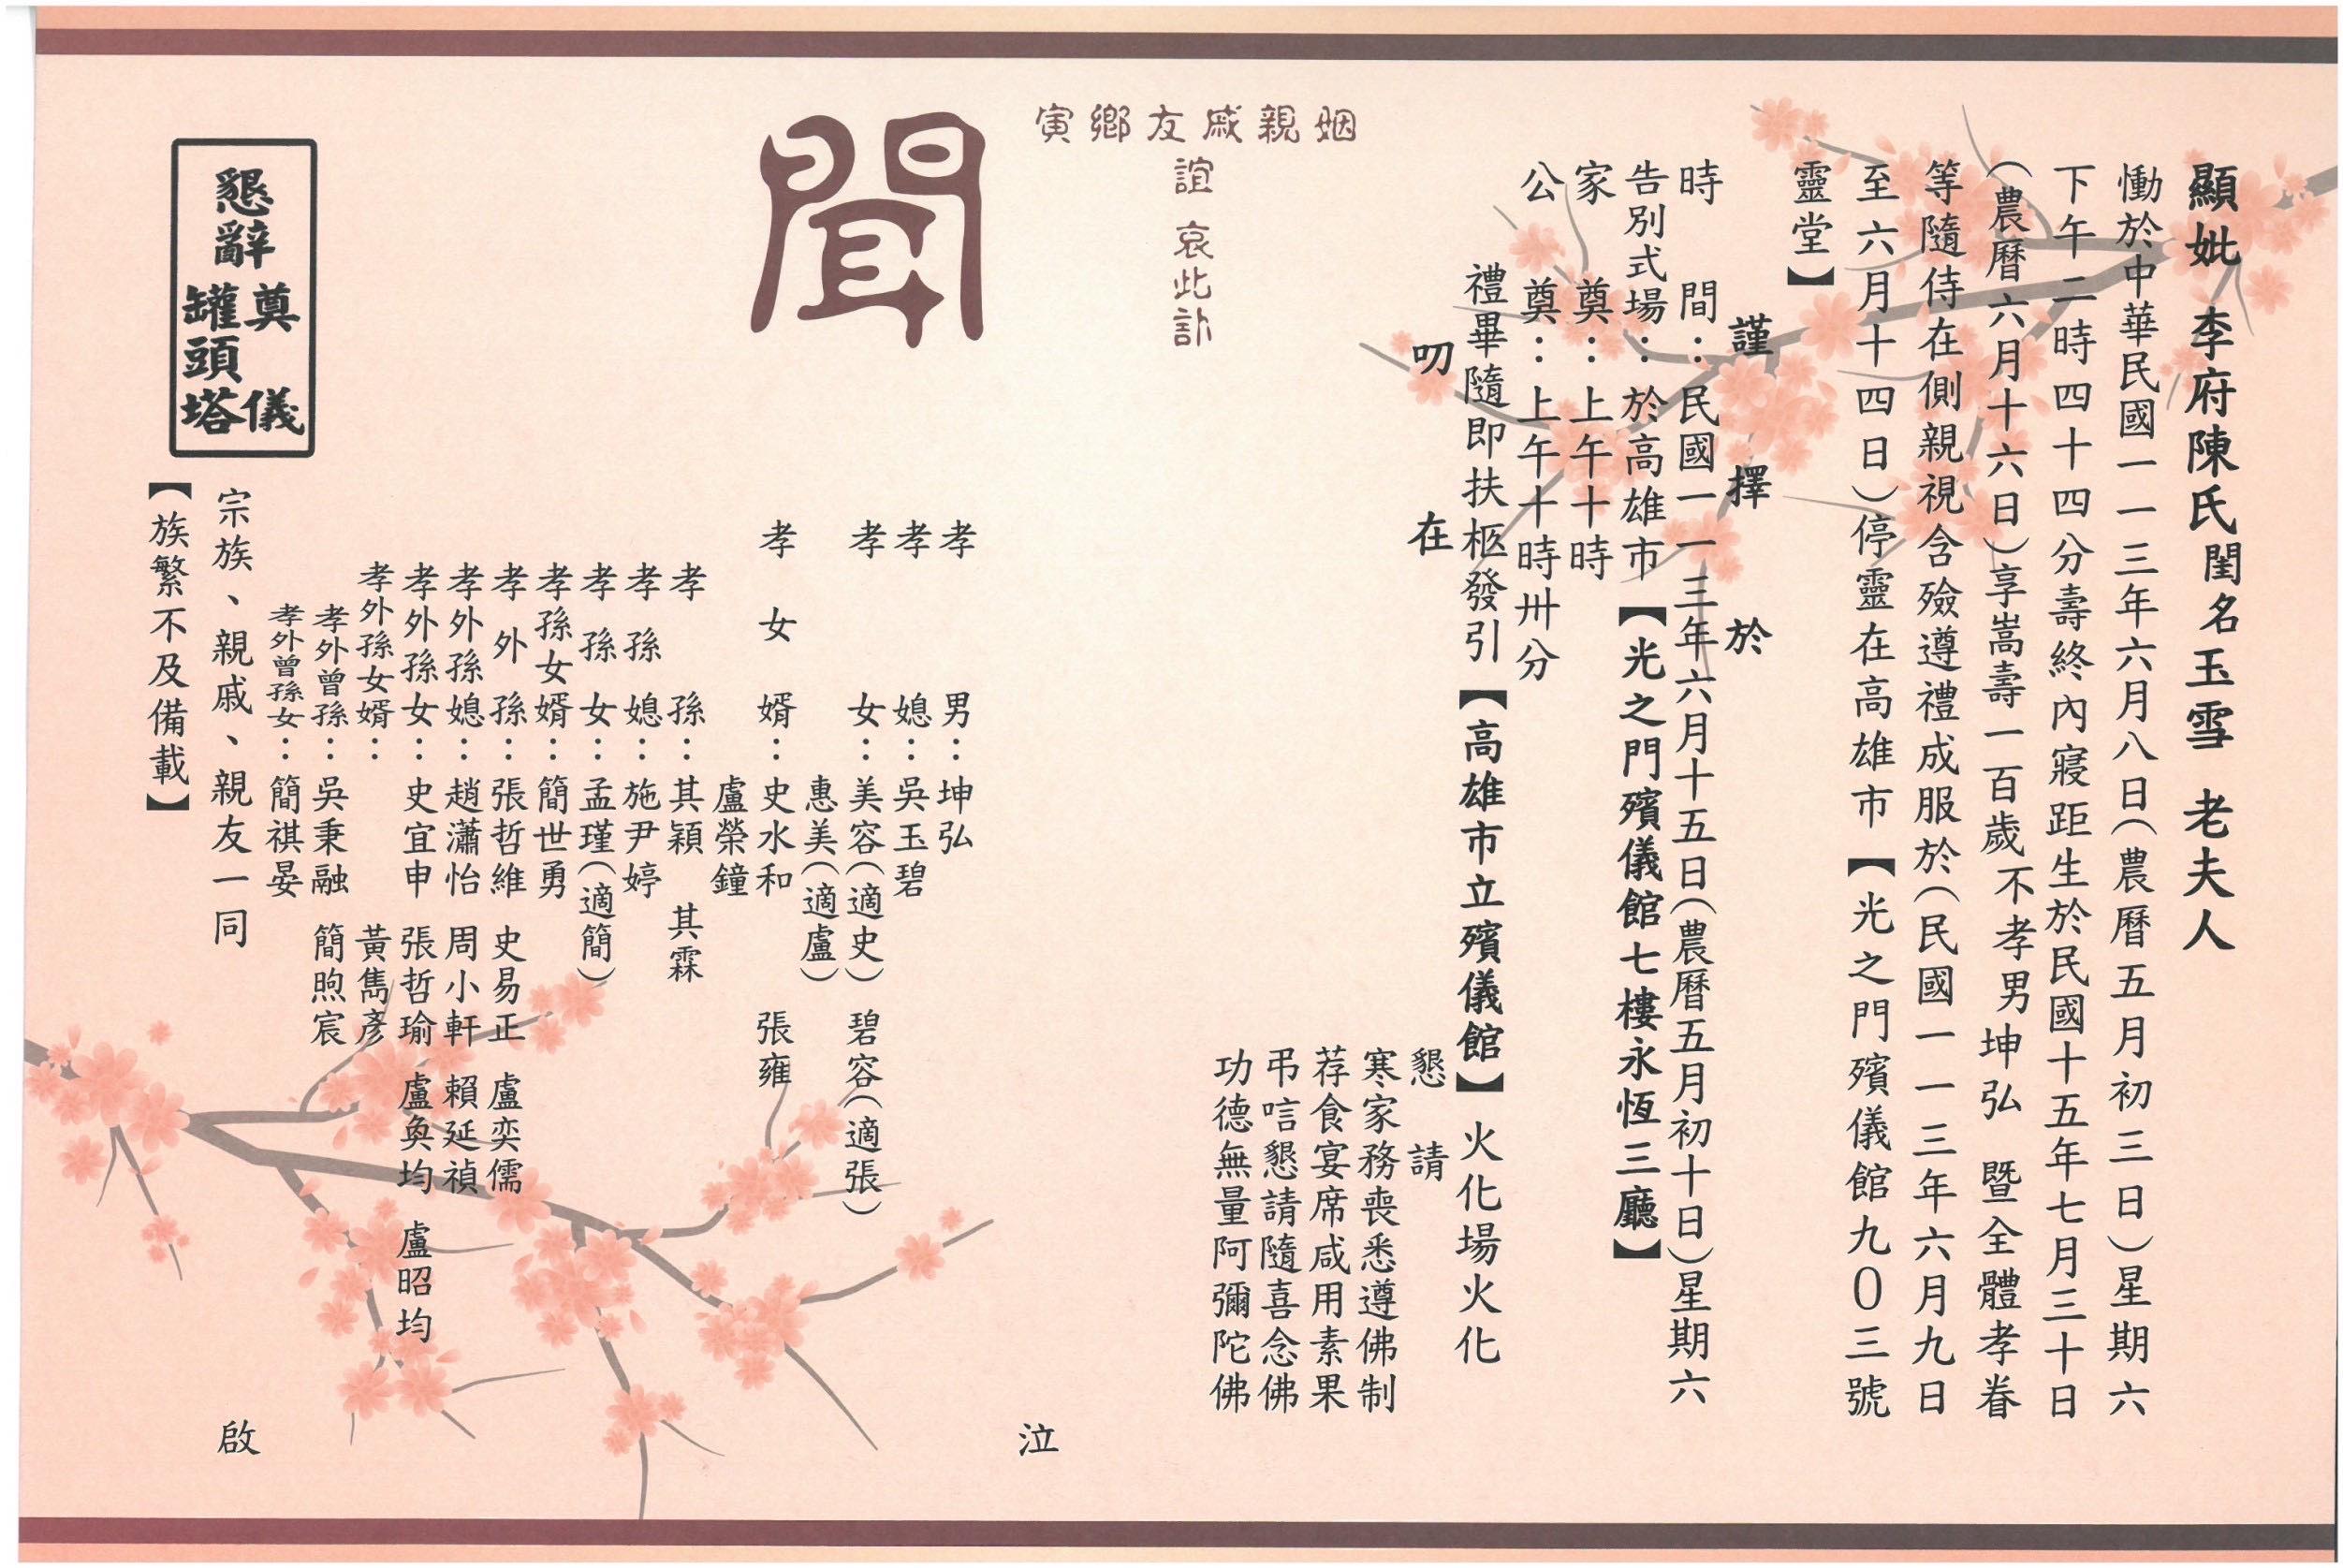 顯妣 李府陳氏閨名玉雪 老夫人
慟於中華民國一一三年六月八日(農曆五月初三日)星期六
下午二時四十四分壽終內寢距生於民國十五年七月三十日
(農曆六月十六日)享嵩壽一百歲不孝男 坤弘 暨全體孝眷
等隨侍在側親視含殮遵禮成服於(民國一一三年六月九日
至六月十四日)停靈在高雄市【光之門殯儀館九0三號
靈堂】
謹擇於
時間:民國一一三年六月十五日(農曆五月初十日)星期六
告別式場:於高雄市【光之門殯儀館七樓永恆三廳】
家奠:上午十時
公奠:上午十時卅分
禮畢隨即扶柩發引【高雄市立殯儀館】火化場火化
叨在
懇請
寒家務喪悉遵佛制
荐食宴席咸用素果
弔唁懇請隨喜念佛
功德無量阿彌陀佛
姻親戚友鄉寅
誼 哀此訃
聞
泣
孝男:坤弘
孝媳:吳玉碧
孝女:美容(適史) 碧容(適張)
惠美(適盧)
孝女婿:史水和 張雍
盧榮鐘
孝孫:其穎 其霖
孝孫媳:施尹婷
孝孫女:孟瑾(適簡)
孝孫女婿:簡世勇
孝外孫:張哲維 史易正 盧奕儒
孝外孫媳:趙瀟怡 周小軒 賴延禎
孝外孫女:史宜申 張哲瑜 盧奐均 盧昭均
孝外孫女婿: 黃雋彥
孝外曾孫:吳秉融 簡煦宸
孝外曾孫女:簡祺晏
宗族、親戚、親友一同
啟
【族繁不及備載】
懇辭
奠儀
罐頭塔